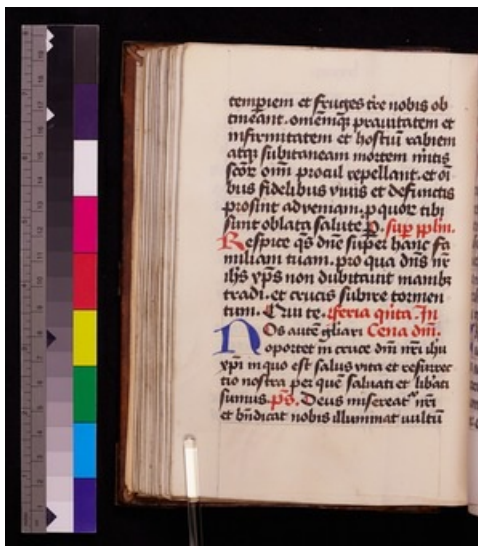 temperiem et fruges tr̄e nobis ob
tineant. om̄emq̄ prauitatem et
infirmitatem et hostiū rabiem
atq̄ subitaneam mortem m̄itis
sc̄or om̄i procul repellant. et oı̄
bus fidelibus viuis et defunctis
prosint ad veniam. p quor̄ tibi
sunt oblata salute P. sup pplm̄.
Respice qs dn̄e super hanc fa
miliam tuam. pro qua dn̄s nr̄
ih̄s xp̄s non dubitauit manibꝫ
tradi. et crucis subire tormen
tum. Qui te. feria qu̅ta. In
Nos autē gl̄iari Cena dn̄i.
oportet in cruce dn̄i nr̄i ih̄u
xp̄i in quo est salus vita et resurrec
tio nostra per quē saluati et lib̄ati
sumus. ps̄. Deus misereat' nr̄i
et bn̄dicat nobis illuminat vultū